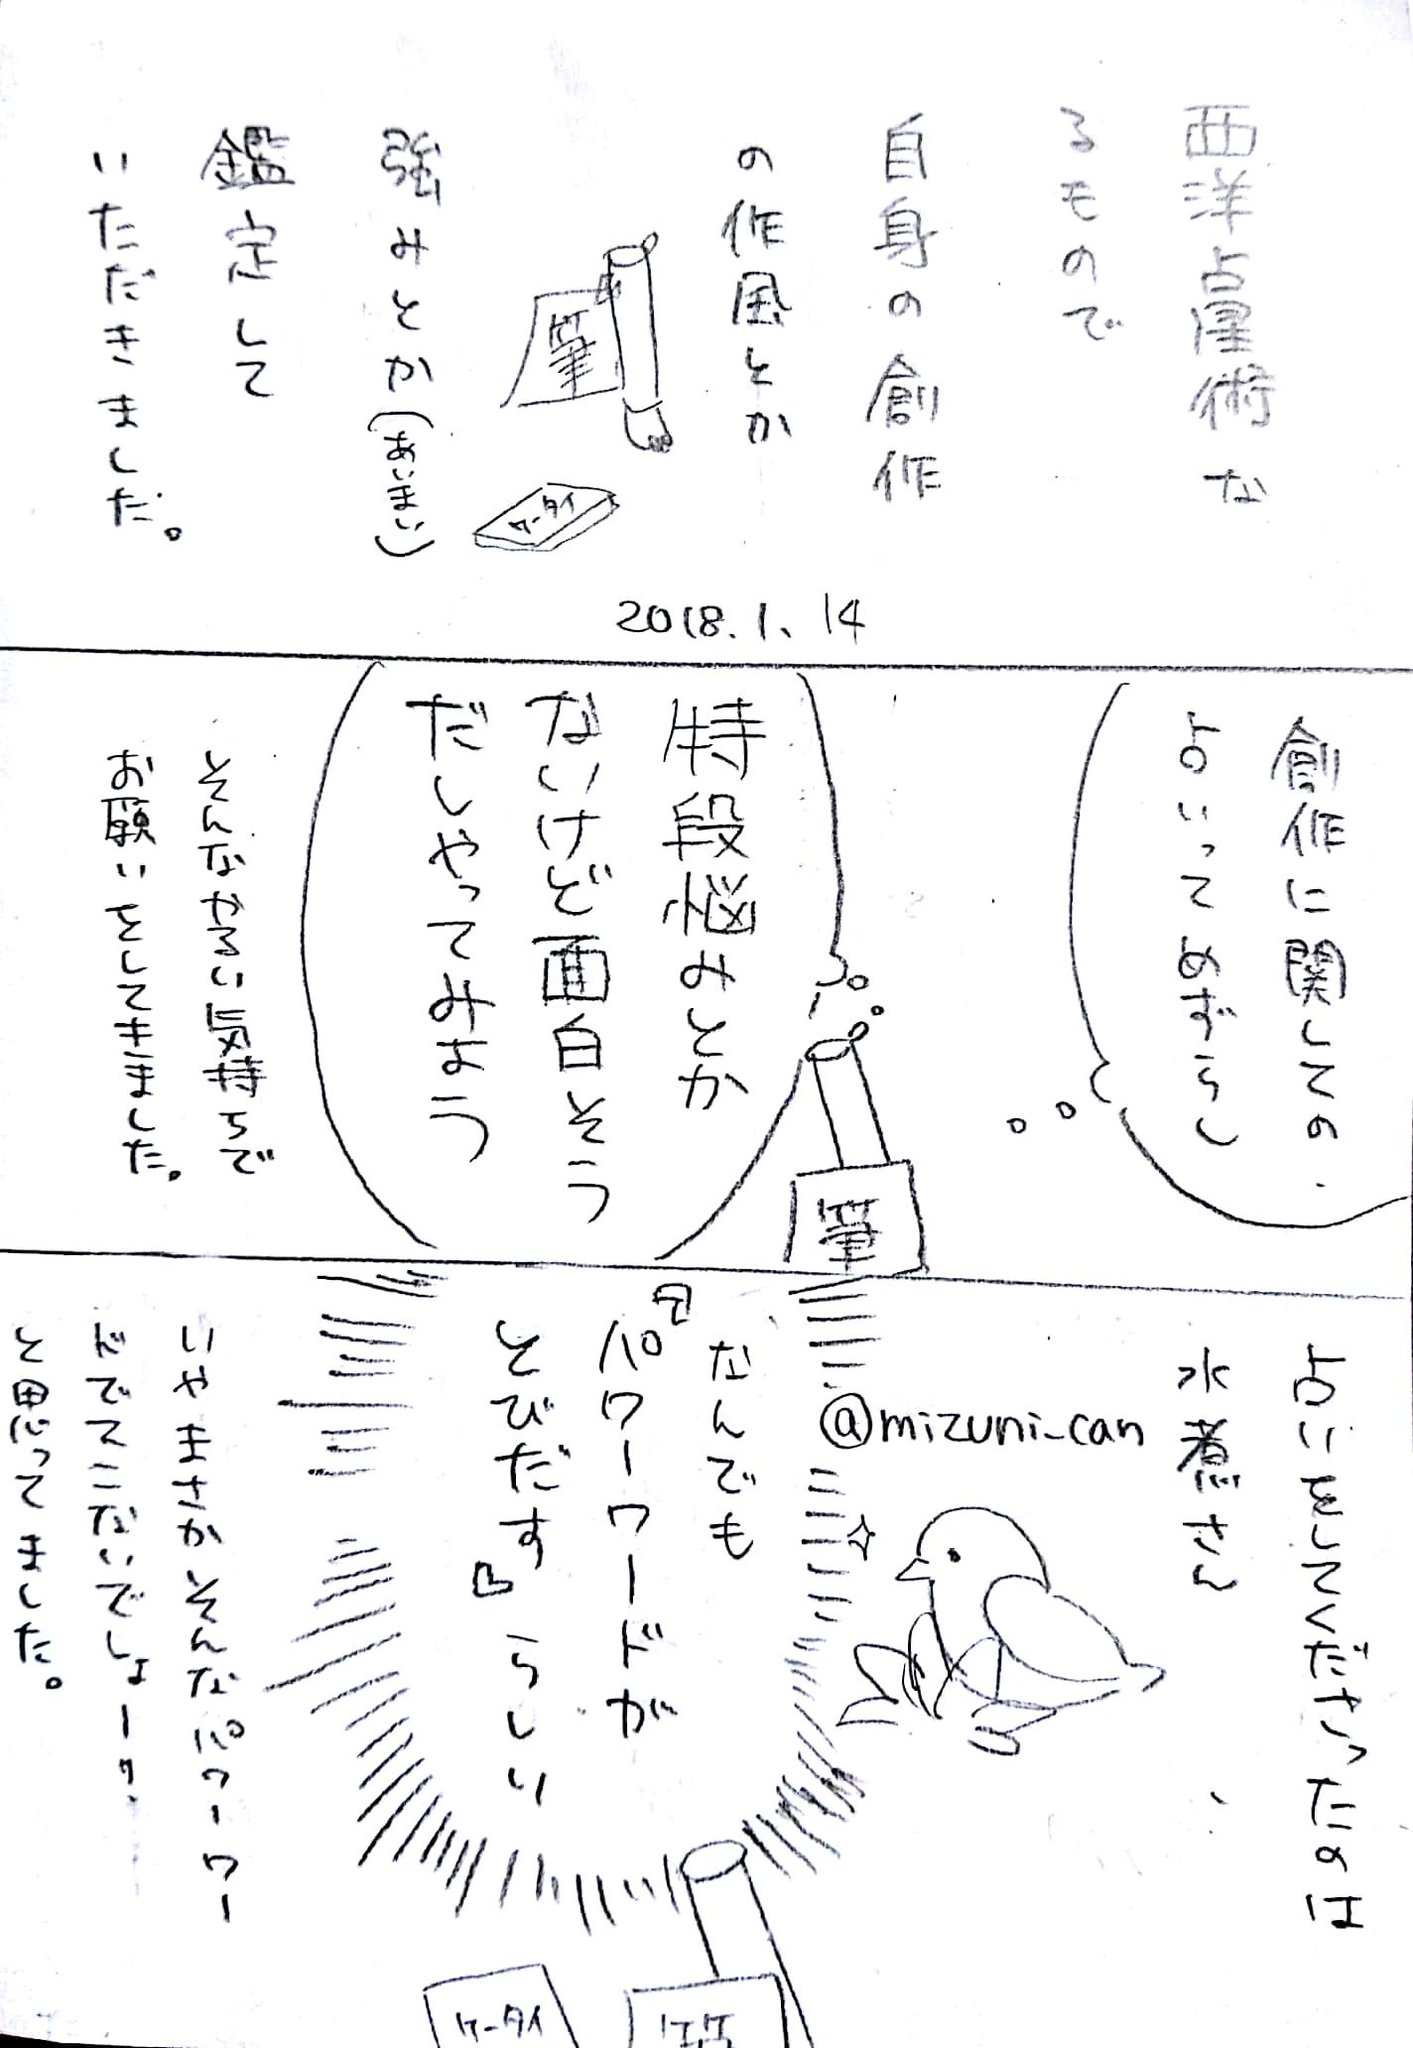 西洋占星術な
るもので
自身の創作
の作風とか
筆
ケータイ
強みとか(あいまい)
鑑定して
いただきました。
2018.1.14
創作に関しての
占いってめずらし
筆
特段悩みとか
ないけど面白そう
だしやってみよう
そんなかるい気持ちで
お願いをしてきました。
占いをしてくださったのは
水煮さん
@mizuni_can
なんでも
『パワーワードが
とびだす』らしい
ケータイ
いやまさかそんなパワーワー
ドでてこないでしょー?
と思ってました。